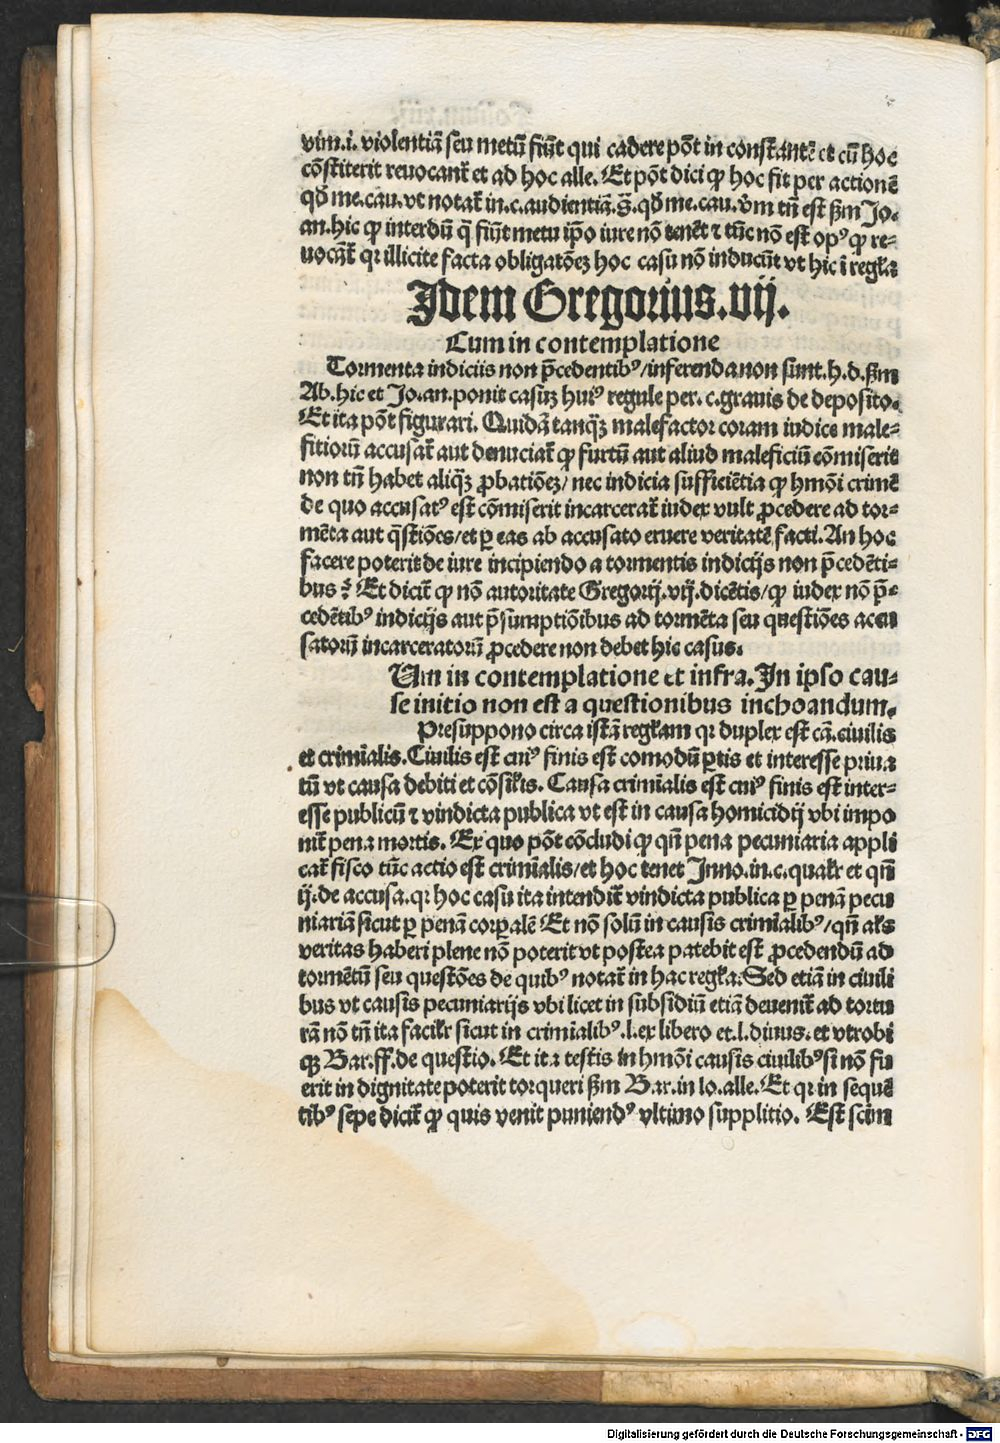 vim.i. violentiā seu metū fiūt qui cadere pōt in constantē et cū hoc
cōstiterit reuocant᷑ et ad hoc alle. Et pōt dici ꝙ hoc fit per actionē
qđ me. cau. vt notat᷑ in. c. audientiā. s̄. qđ me. cau. v̄m tn̄ est ẜm Jo.
an. hic ꝙ interdū q̄ fiūt metu ip̄o iure nō tenēt ⁊ tūc nō est opꝰ ꝙ re⸗
uocāt᷑ qꝛ illicite facta obligatōeꝫ hoc casu nō inducūt vt hic ī regl̄a
Idem Gregorius. vij.
Cum in contemplatione
Tormenta indiciis non p̄cedentibꝰ/inferenda non sunt. h. d. ẜm
Ab. hic et Jo. an. ponit casuꝫ huiꝰ regule per. c. grauis de deposito.
Et ita pōt figurari. Quidā tanq̄ꝫ malefactor coram iudice male⸗
fitiorū accusat᷑ aut denuciat᷑ ꝙ furtū aut aliud maleficiū cōmiserit
non tn̄ habet aliq̄ꝫ ꝓbatiōeꝫ/ nec indicia sufficiētia ꝙ hmōi crimē
de quo accusatꝰ est cōmiserit incarcerat᷑ iudex vult ꝓcedere ad tor⸗
mēta aut q̄stiōes/et ꝑ eas ab accusato eruere veritatē facti. An hoc
facere poterit de iure incipiendo a tormentis indicijs non p̄cedēti⸗
bus ? Et dicit᷑ ꝙ nō autoritate Gregorij. vij. dicētis/ꝙ iudex nō p̄⸗
cedētibꝰ indicijs aut p̄sumptiōibus ad tormēta seu questiōes accu
satorū incarceratorū ꝓcedere non debet hic casus.
Um in contemplatione et infra. In ipso cau⸗
se initio non est a questionibus inchoandum.
Presuppono circa istā regl̄am qꝛ duplex est cā. ciuilis
et crimīalis. Ciuilis est cuiꝰ finis est comodū ꝑtis et interesse priua
tū vt causa debiti et cōsil̄is. Causa crimīalis est cuiꝰ finis est inter⸗
esse publicū ⁊ vindicta publica vt est in causa homicidij vbi impo
nit᷑ pena mortis. Ex quo pōt cōcludi ꝙ qn̄ pena pecuniaria appli
cat᷑ fisco tūc actio est crimīalis/et hoc tenet Inno. in. c. qual̄r et qn̄
ij. de accusa. qꝛ hoc casu ita intendit᷑ vindicta publica ꝑ penā pecu
niariā sicut ꝑ penā corꝑalē Et nō solū in causis crimīalibꝰ/qn̄ al̄s
veritas haberi plene nō poterit vt postea patebit est ꝓcedendū ad
tormētū seu questōes de quibꝰ notat᷑ in hac regl̄a: Sed etiā in ciuili
bus vt causis pecuniarijs vbi licet in subsidiū etiā deuenit᷑ ad tortu
rā nō tn̄ ita facil̄r sicut in crimīalibꝰ. l. ex libero et. l. diuus. et vtrobi
qꝫ Bar. ff. de questio. Et ita testis in hmōi causis ciuilibꝰ si nō fu
erit in dignitate poterit torqueri ẜm Bar. in lo. alle. Et qꝛ in sequē
tibꝰ sepe dicit᷑ ꝙ quis venit puniendꝰ vltimo supplitio. Est sciēn
Digitalisierung gefördert durch die Deutsche Forschungsgemeinschaft - DFG